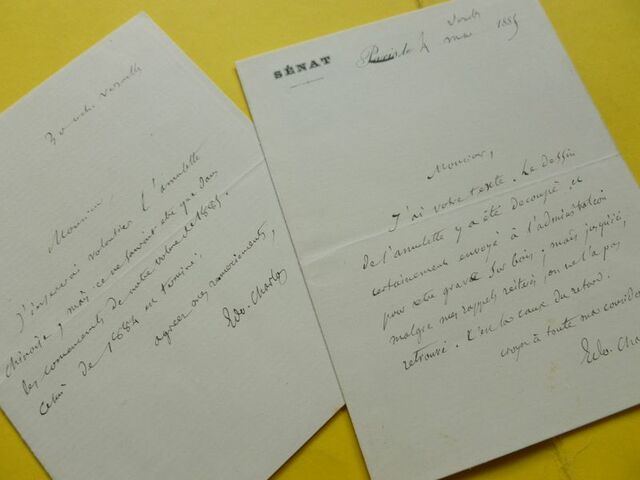 Monsieur,
J'insererai volontiers l'amulette
chinoise ; mais ce ne saurait être que dans
les commencements de notre volume de 1885.
Celui de 1884 est terminé.
agréez mes remerciements,
Edo. Charton
SÉNAT
Paris le 4 mai 1885
Monsieur,
J'ai votre texte. Le dessin
de l'amulette y a été decoupé et
certainement envoyé à l'administration
pour etre gravé sur bois ; mais jusqu'ici
malgré mes rappels reiterés, on ne l'a pas
retrouvé. C'est la cause du retard.
croyez à toute ma considé
Edo. Cha